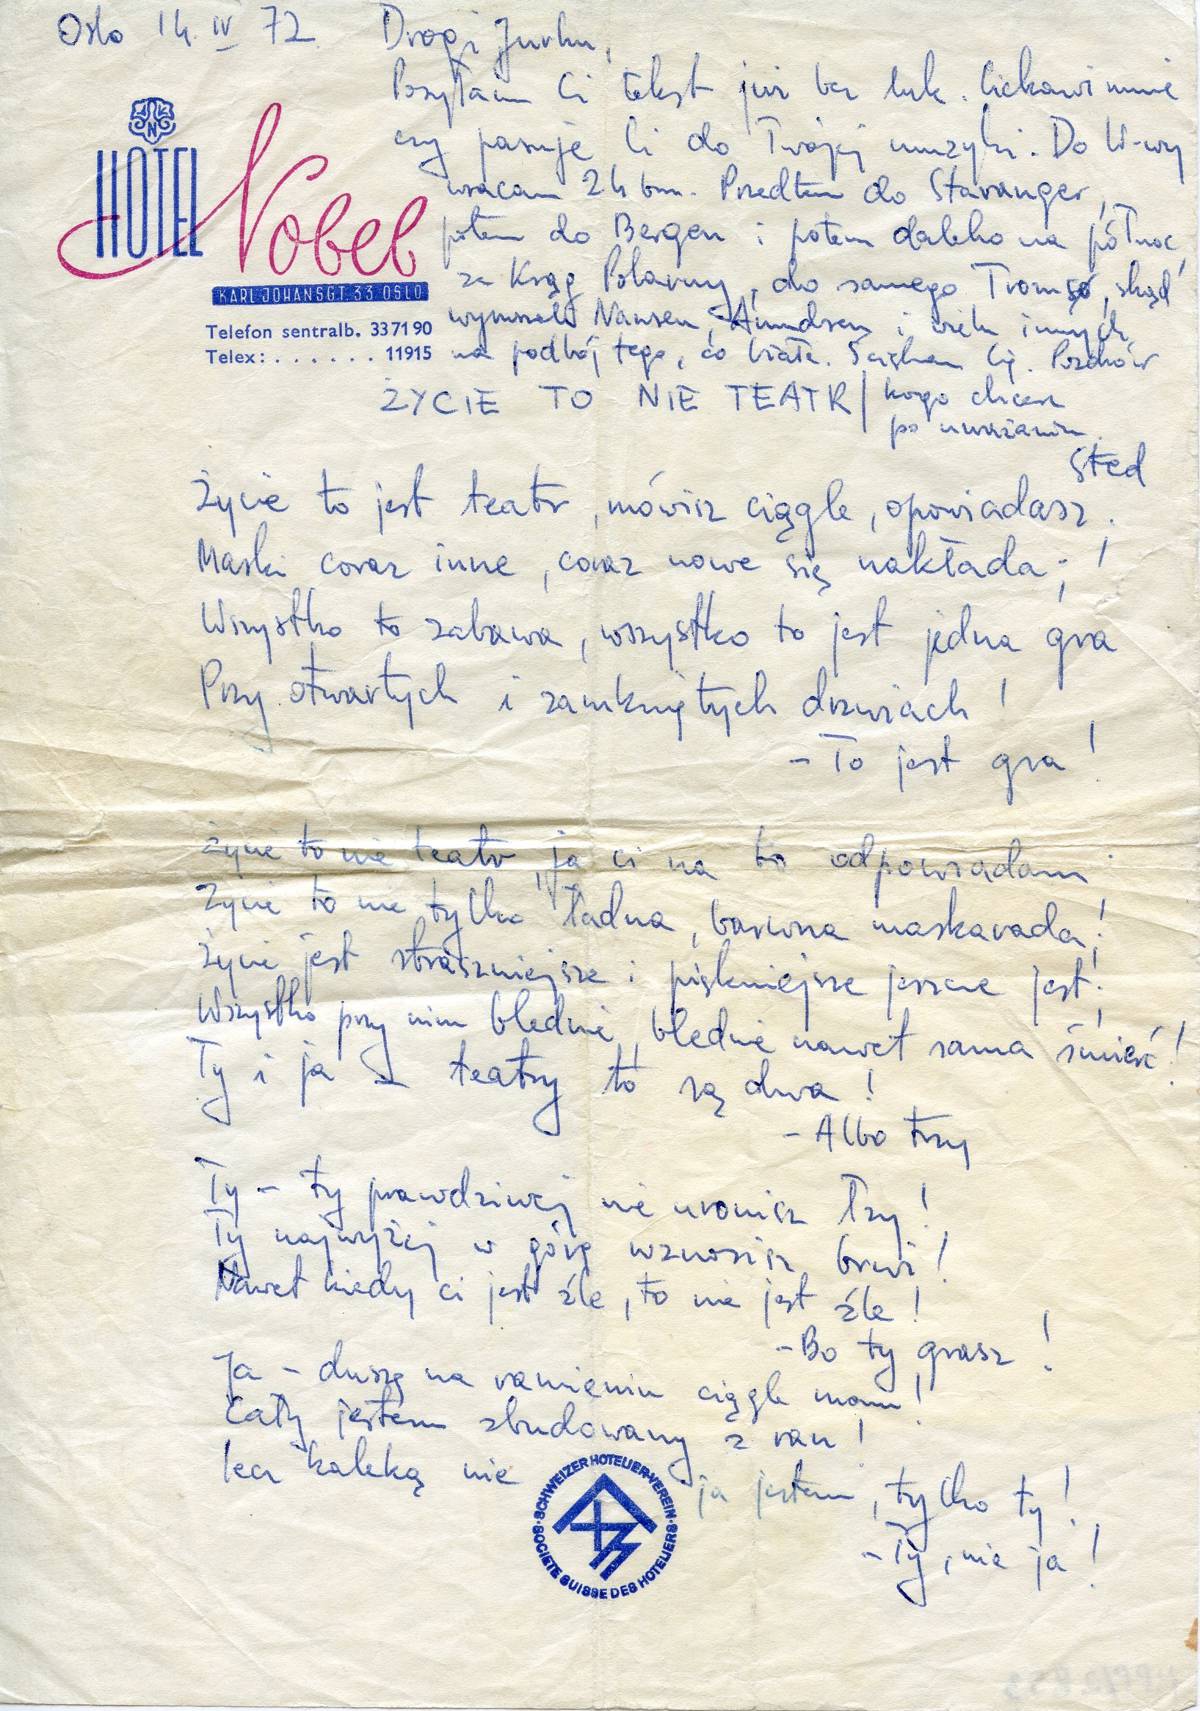 Oslo 14 IV 72
Drogi Jurku,
Posyłam Ci tekst już bez luk. Ciekawi mnie
czy pasuje Ci do Twojej muzyki. Do W-wy
wracam 24 bm. Przedtem do Stavanger,
potem do Bergen i potem daleko na północ,
za Krąg Polarny, do samego Tromsø, skąd
wyruszali Nansen, Amundsen i wielu innych
na podbój tego, co białe. Ściskam Cię. Pozdrów
kogo chcesz
po uważaniu.
Sted
HOTEL Nobel
KARL JOHANSGT. 33. OSLO
Telefon sentralb. 33 71 90
Telex: . . . . . . 11915
ŻYCIE TO NIE TEATR
Życie to jest teatr, mówisz ciągle, opowiadasz.
Maski coraz inne, coraz nowe się nakłada;!
Wszystko to zabawa, wszystko to jest jedna gra
Przy otwartych i zamkniętych drzwiach!
- To jest gra!
Życie to nie teatr, ja ci na to odpowiadam.
Życie to nie tylko ładna, barwna maskarada;!
Życie jest straszniejsze i piękniejsze jeszcze jest!
Wszystko przy nim blednie, blednie nawet sama śmierć!
Ty i ja - teatry to są dwa!
- Albo trzy
Ty - ty prawdziwej nie uronisz łzy!
Ty najwyżej w górę wznosisz brwi!
Nawet kiedy ci jest źle, to nie jest źle!
- Bo ty grasz!
Ja - duszę na ramieniu ciągle mam!
Cały jestem zbudowany z ran!
lecz kaleką nie ja jestem, tylko ty!
- Ty, nie ja!
SCHWEIZER HOTELIER-VEREIN
SOCIETE SUISSE DES HOTELIERS